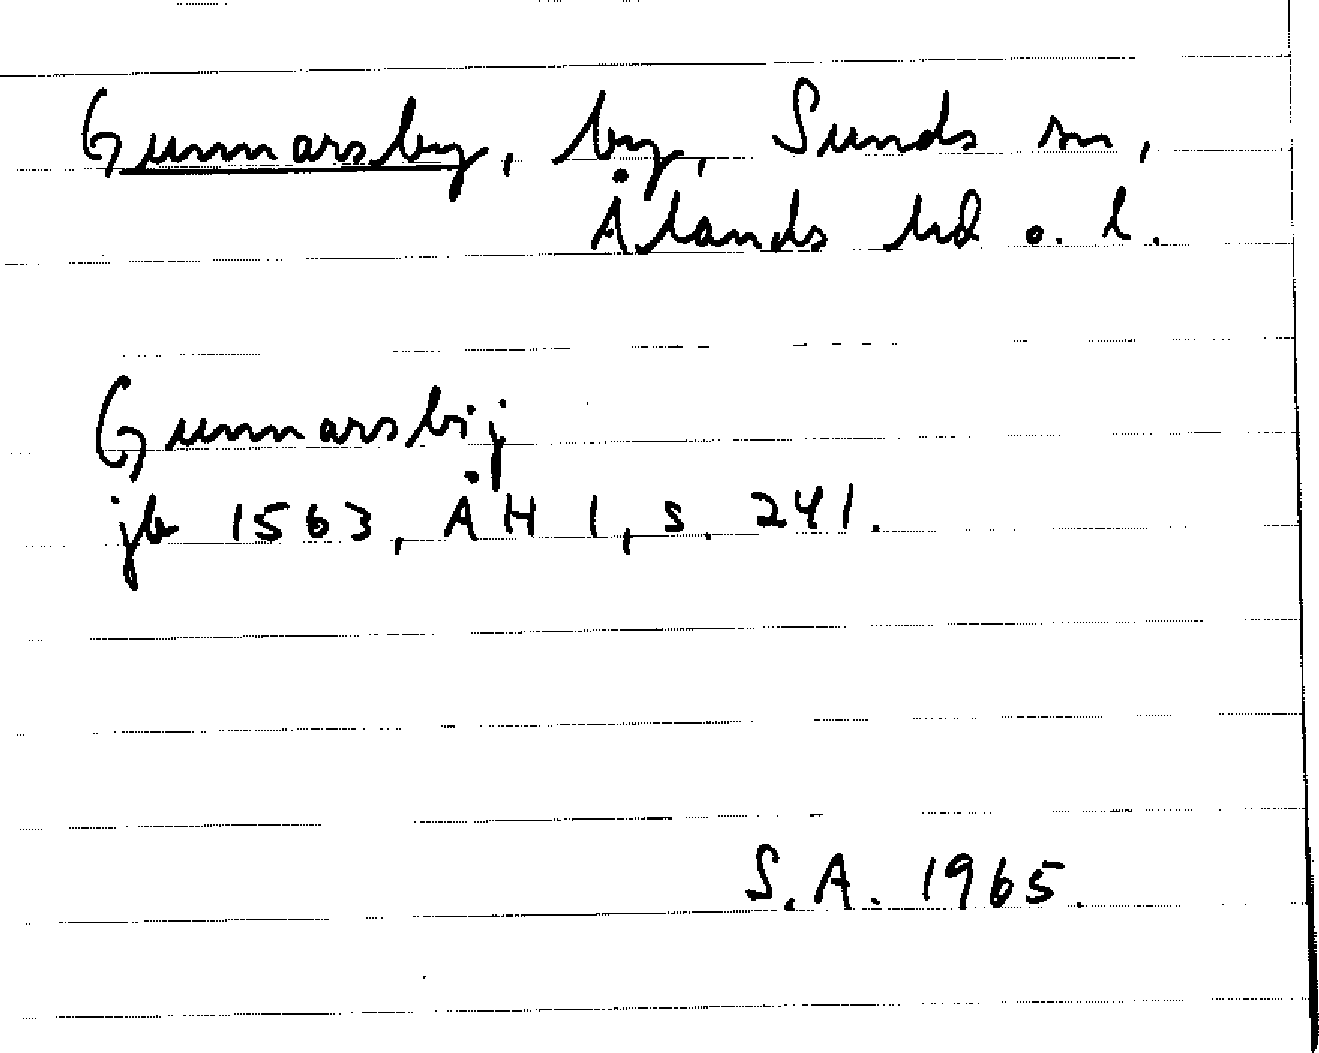 Gunnarsby, by, Sunds sn,
Ålands hd o. l.
Gunnarsbij
jb 1563, ÅH 1, s. 241.
S.A. 1965.